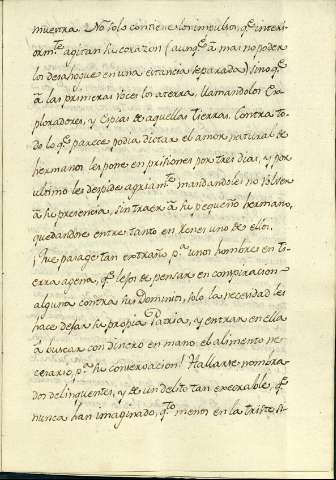 muestra. No solo contiene los impulsos, q.e interi-
orm.te agitan su corazon (aunq.e â mas no poder
los desahogue en una estancia separada) sino q.e
â las primeras voces los aterra, llamandolos Ex-
ploradores, y Espias de aquellas tierras. Contra to-
do lo q.e parece podia dictar el amor natural de
hermanos les pone en prisiones por tres dias, y por
ultimo les despide agriam.te mandandoles no volver
â su presencia, sin traer â su pequeño hermano,
quedandose entre tanto en Rones uno de ellos.
Que parage tan extraño p.a unos hombres en ti-
erra agena, q.e lejos de pensar en conspiracion
alguna contra sus Dominios, solo la necesidad les
hace dejar su propia Patria, y entrar en ella
â buscar con dinero en mano el alimento ne-
cesario, p.a su conservacion! Hallarse nombra-
dos delinquentes, y de un delito tan execrable, q.e
nunca han imaginado, q.to menos en la triste si-